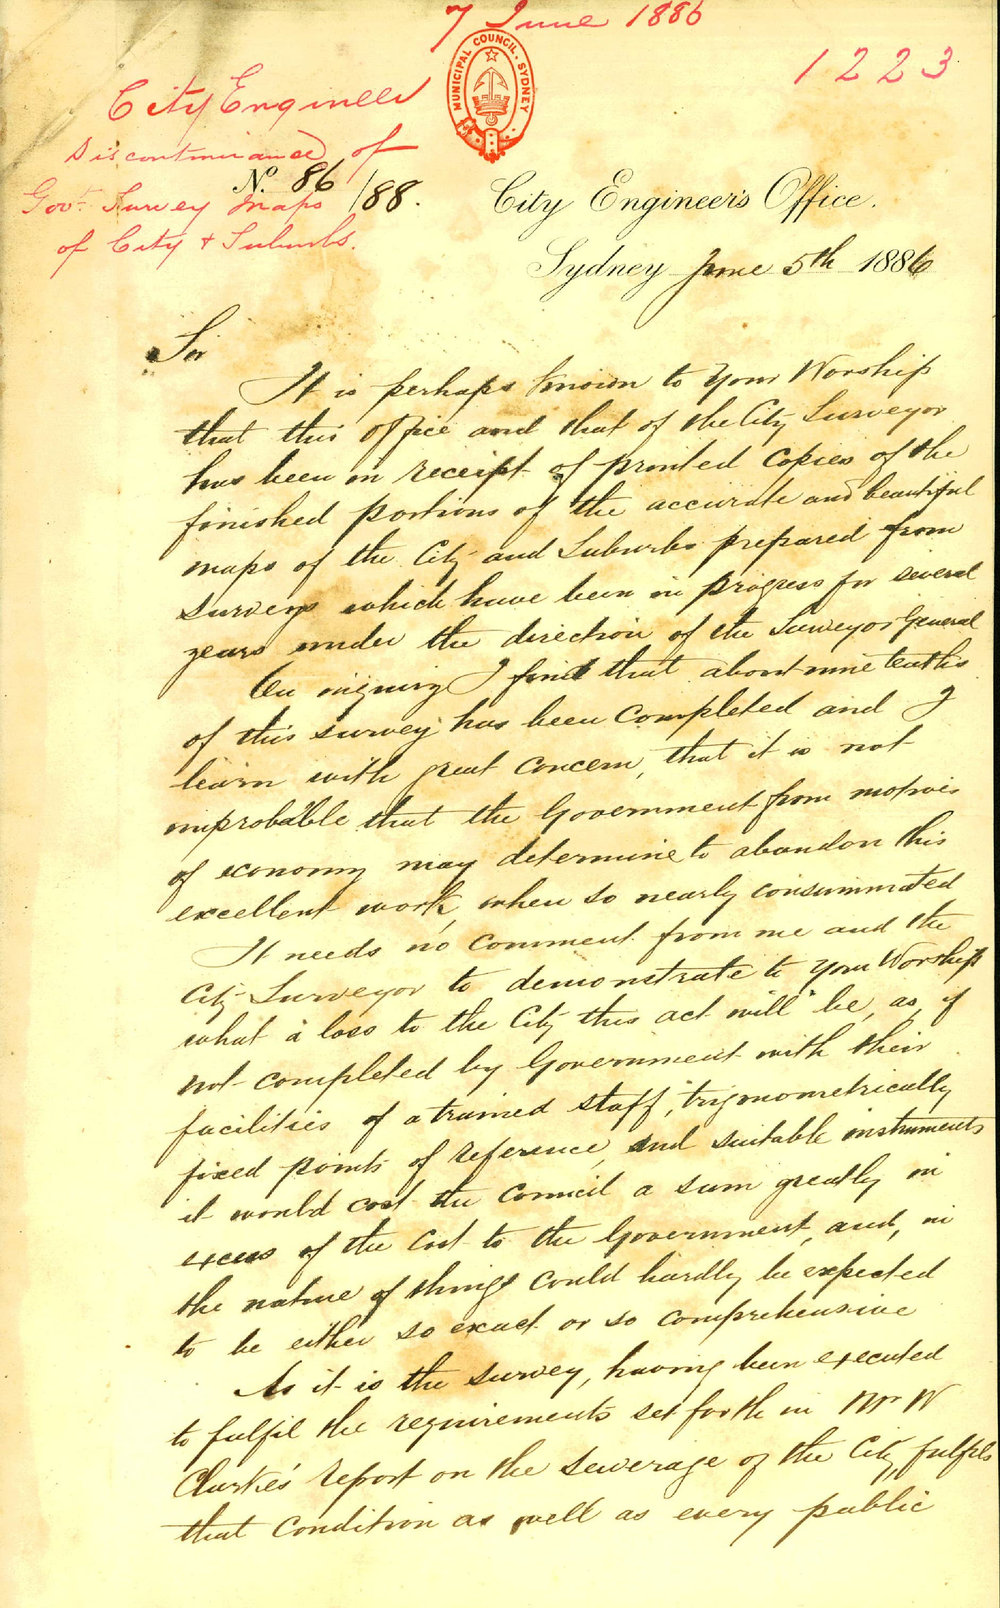 7 June 1886
MUNICIPAL COUNCIL. SYDNEY
1223
City Engineer
Discontinuance of
No. 86/88.
Govt. Survey Maps
of City & Suburbs.
City Engineer's Office.
Sydney June 5th 1886
Sir
It is perhaps known to Your Worship
that this office and that of the City Surveyor
has been in receipt of printed copies of the
finished portions of the accurate and beautiful
maps of the City and Suburbs prepared from
surveys which have been in progress for several
years under the direction of the Surveyor General
On inquiry I find that about nine tenths
of this survey has been completed and I
learn with great concern, that it is not
improbable that the Government from motives
of economy may determine to abandon this
excellent work, when so nearly consummated
It needs no comment from me and the
City Surveyor to demonstrate to Your Worship
what a loss to the City this act will be, as, if
not completed by Government with their
facilities of a trained staff, trigonometrically
fixed points of reference, and suitable instruments
it would cost the Council a sum greatly in
excess of the cost to the Government, and, in
the nature of things could hardly be expected
to be either so exact or so comprehensive
As it is the survey, having been executed
to fulfil the requirements set forth in Mr W
Clarke's report on the sewerage of the City, fulfils
that condition as well as every public